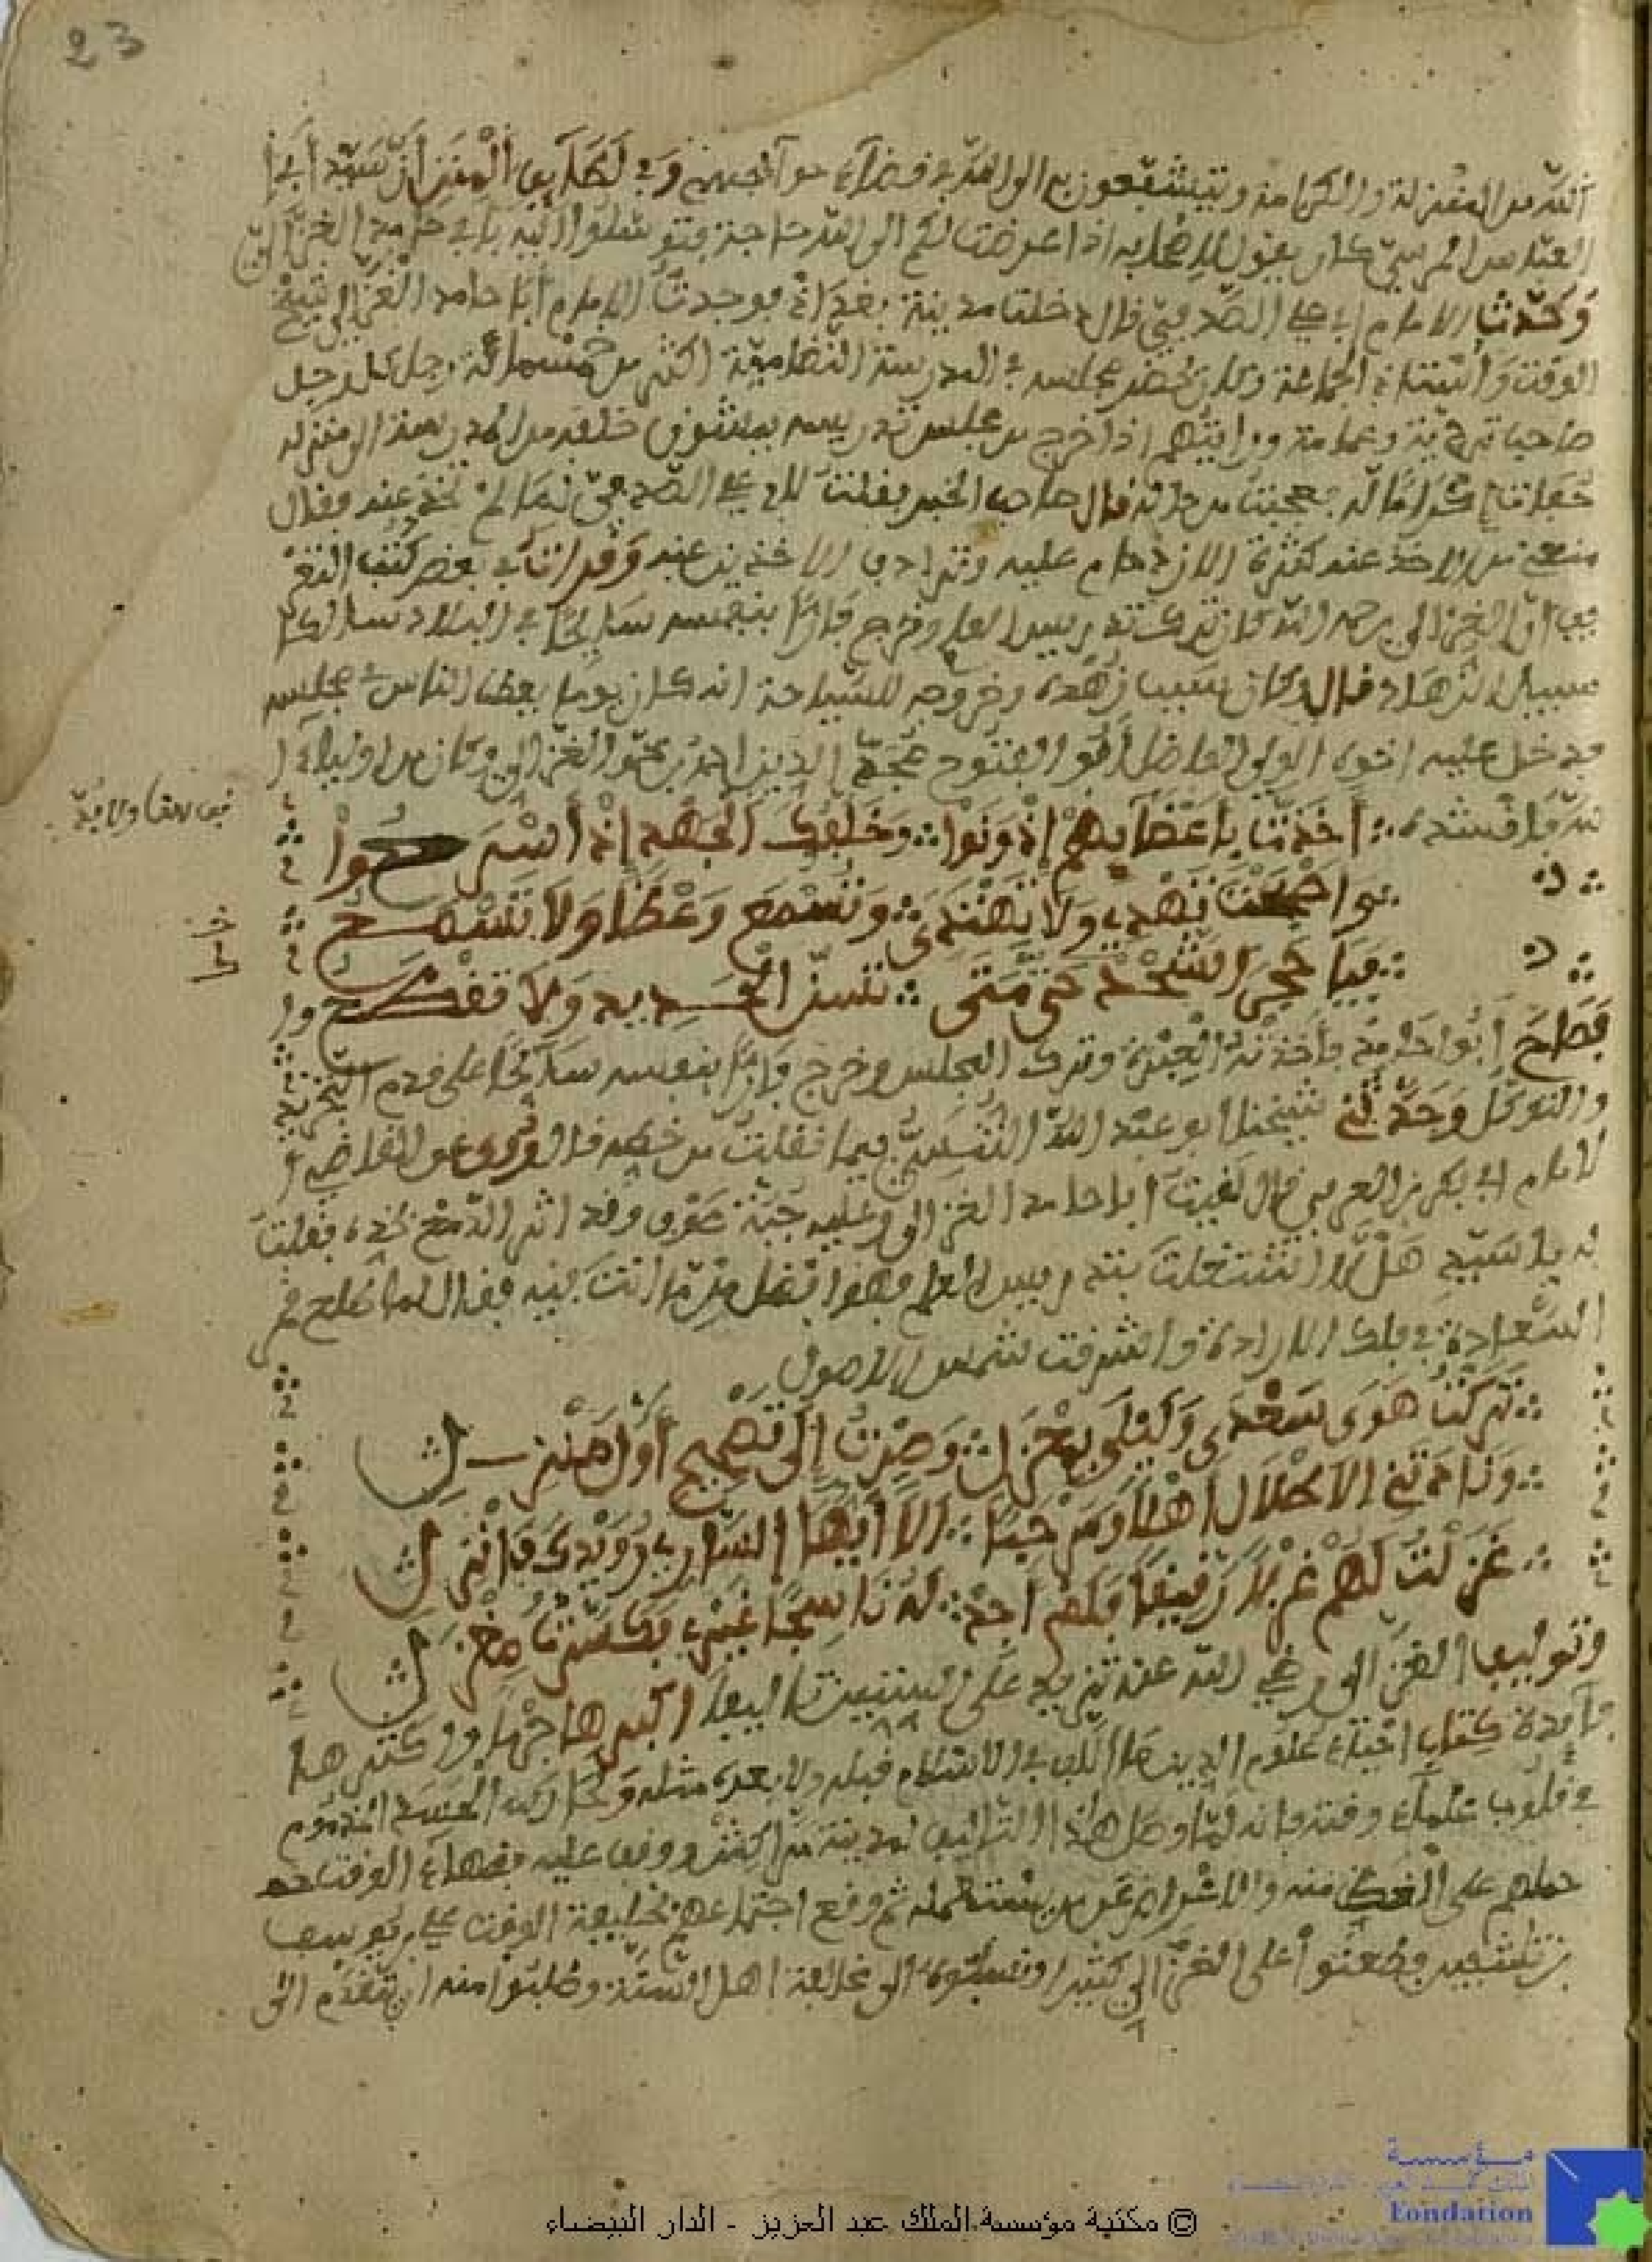 23
الله من المنزلة والكرامة ويتشفعون به الى الله في قضاء حوائجهم وفي لطائف المنن أن سيدي أبا
العباس المرسي كان يقول لاصحابه اذا عرضت لكم الى الله حاجة فتوسلوا اليه بأبي حامد الغزالي
وحدثنا الامام ابي علي الصدفي قال دخلت مدينة بغداد فوجدت الامام أبا حامد الغزالي شيخ
الوقت وكان يحضر مجلسه في المدرسة النظامية اكثر من خمسمائة رجل كل رجل
صاحب وعمامة ورايتهم اذا خرج من مجلس تدريسه يمشون خلفه من المدرسة الى منزله
اكراما له فعجبت من ذلك قال صاحب الخبر فقلت لابي علي الصدفي فما لم تأخذ عنه فقال
منعني من الاخذ عنه كثرة الازدحام عليه الاخذين عنه وقد رأيت في بعض كتب
ان الغزالي رحمه الله كان ترك تدريس العلم وخرج فارا بنفسه سائحا في البلاد سالكا
سبيل الزهاد قال وكان سبب زهده وخروجه للسياحة انه كان يوما يعظ الناس في مجلسه
فدخل عليه اخوه الولي الفاضل أبو الفتوح الدين احمد بن محمد الغزالي وكان من اولياء ا
لله فأنشده أخذت بأعضادهم إذ ونوا وخلفك الجهد إذ أسرعوا
فواصبحت تهدي ولا تهتدي وتسمع وعظا ولا تسمع
فيا حجر الشحذ حتى متى تسن الحديد ولا تقطع
فصاح أبو حامد فأخذته العبرة وترك المجلس وخرج فارا بنفسه سائحا على قدم التجريد
والتوكل وحدثني شيخنا ابو عبد الله فيما نقلت من خطه قال وروي عن القاضي ا
لامام ابي بكر بن العربي قال لقيت ابا حامد الغزالي وعليه جبة صوف وقد اثر الدمع بخده فقلت
له يا سيدي هلا اشتغلت بتدريس العلم فهو افضل مما انت فيه فقال لما طلع قمر
السعادة في فلك الارادة واشرقت شمس الاصول
تركت هوى سعدى وليلى بمعزل وصرت إلى تصحيح أول منزل
ونادتني الاطلال أهلا ومرحبا الا أيها الساري رويدك فانزل
غزلت لهم غزلا رقيقا فلم أجد له ناسجا غيري فكسرت مغزل
وتواليف الغزالي رضي الله عنه تزيد على الستين تاليفا اكبرها جرما واكثرها
فائدة كتاب احياء علوم الدين ما الف في الاسلام قبله ولا بعده مثله الحسد المذموم
في قلوب علماء وقته فانه لما وصل هذا التاليف لمدينة مراكش ووقف عليه فقهاء الوقت
حملهم على الطعن منه ثم وقع اجتماعهم بخليفة الوقت علي بن يوسف
بن تاشفين وطعنوا على الغزالي كثيرا ونسبوه الى مخالفة اهل السنة وطلبوا منه ان يتقدم الى
© مكتبة مؤسسة الملك عبد العزيز - الدار البيضاء
مؤسسة
Fondation